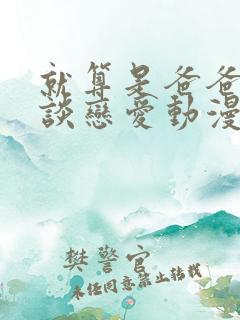 就算是爸爸
談戀愛動漫
樊警官
未經同意禁止轉載